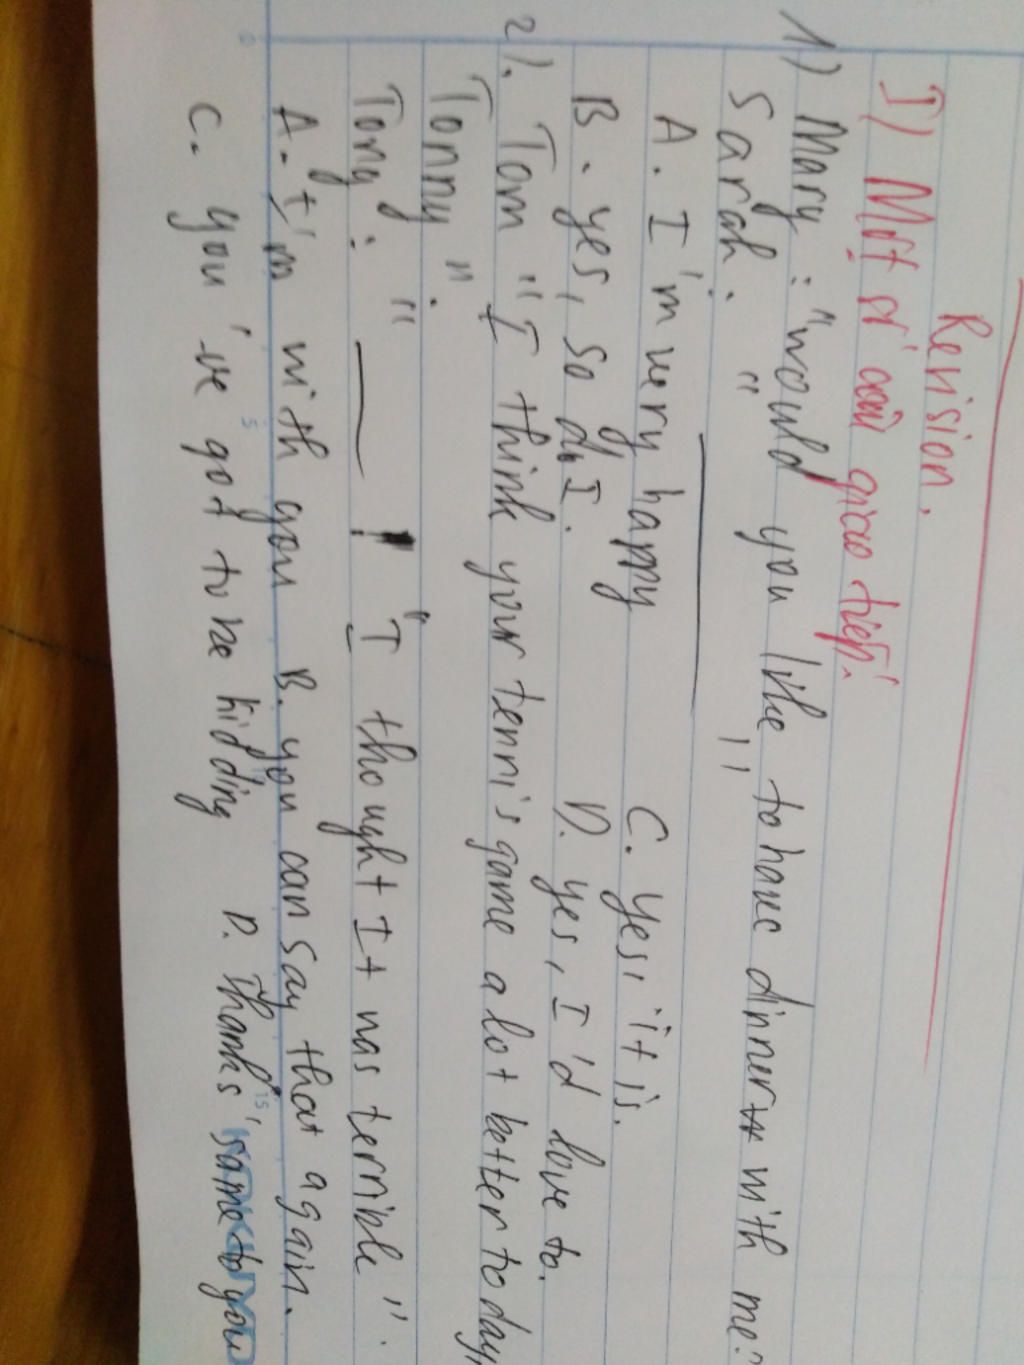 Revision.
I) Một số câu giao tiếp.
1) Mary : "would you like to have dinner with me?
Sarah. " ______ "
A. I'm very happy C. yes, it is.
B. yes, so do I. D. yes, I'd love to.
2). Tom "I think your tennis game a lot better today,
Tonny".
Tony : " ____ ! "I thought It was terrible".
A. I'm with you B. you can say that again.
C. you've got to be kidding D. Thanks, same to you